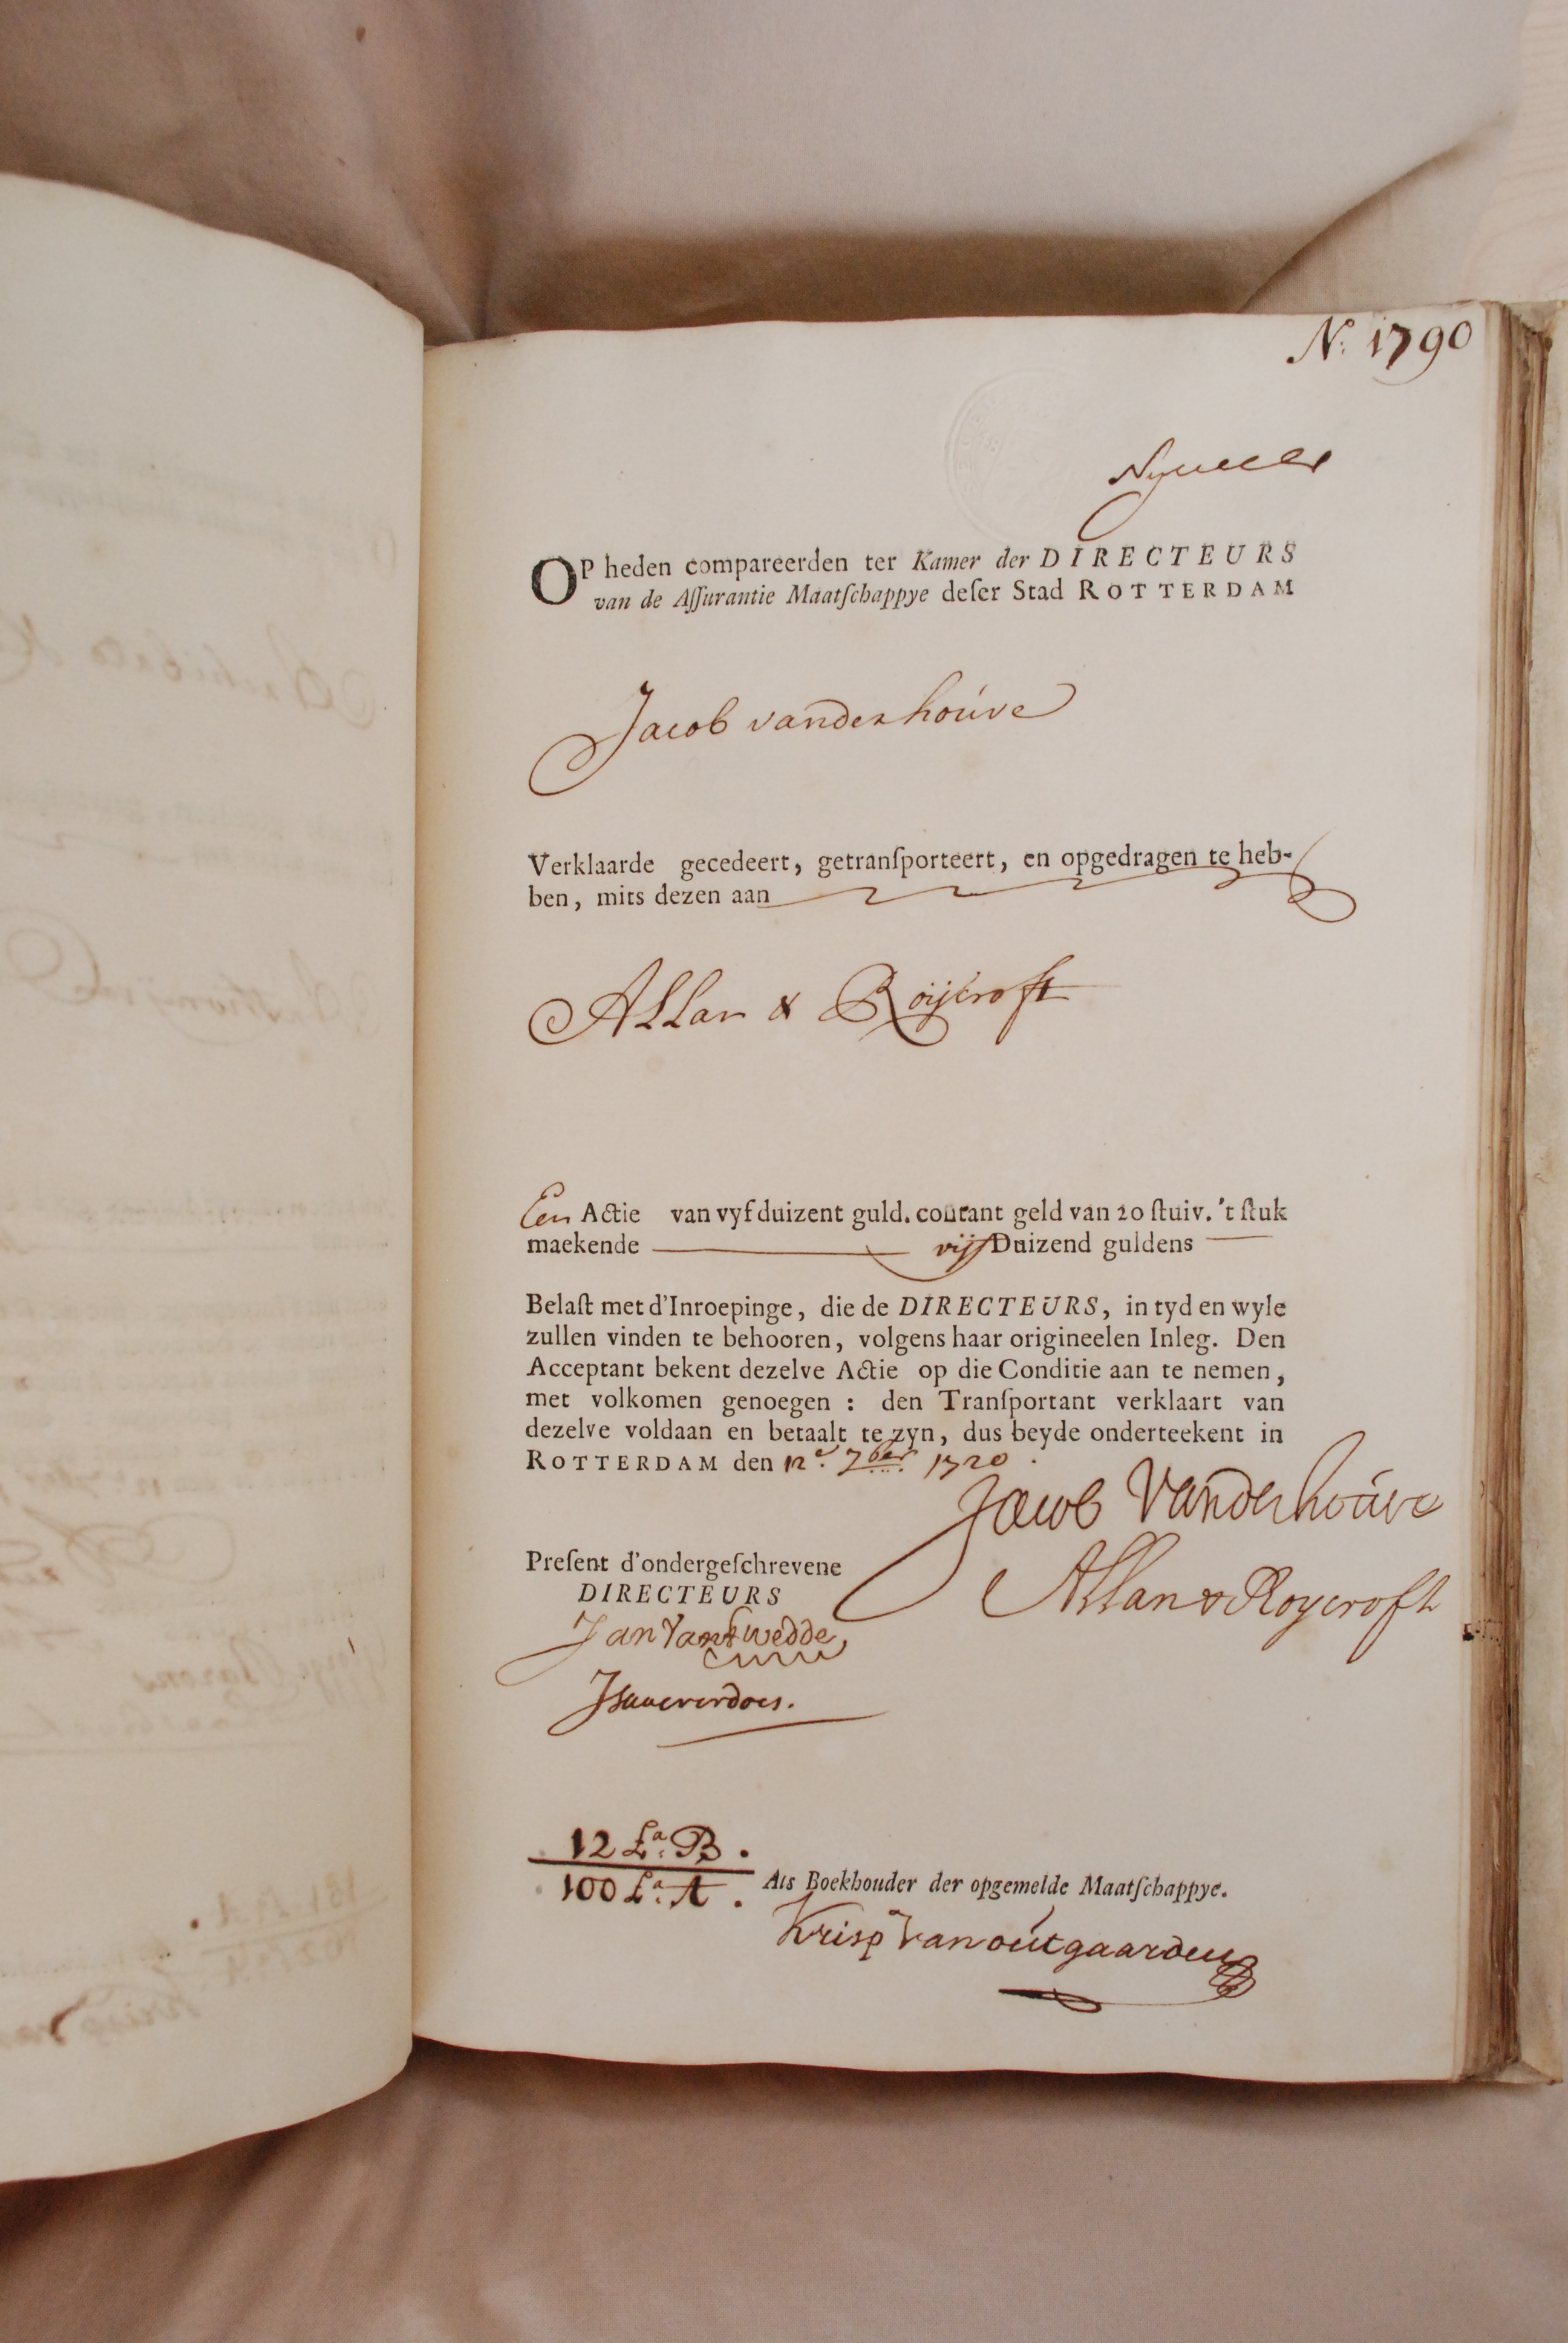 N: 1790
OP heden compareerden ter Kamer der DIRECTEURS
van de Aſſurantie Maatſchappye deſer Stad ROTTERDAM
Jacob vanderhoúve
Verklaarde gecedeert, getranſporteert, en opgedragen te heb-
ben, mits dezen aan
Allan & Roijcroft
Een Actie van vyf duizent guld. courant geld van 20 ſtuiv. 't ſtuk
maekende vijf Duizend guldens
Belaſt met d'Inroepinge, die de DIRECTEURS, in tyd en wyle
zullen vinden te behooren, volgens haar origineelen Inleg. Den
Acceptant bekent dezelve Actie op die Conditie aan te nemen,
met volkomen genoegen : den Tranſportant verklaart van
dezelve voldaan en betaalt te zyn, dus beyde onderteekent in
ROTTERDAM den 12e. 7ber. 1720.
Jacob Vanderhoúve
Allan & Roycroft
Preſent d'ondergeſchrevene
DIRECTEURS
12 La: B.
100 La: A.
Als Boekhouder der opgemelde Maatſchappye.
Krisp Van oútgaarden